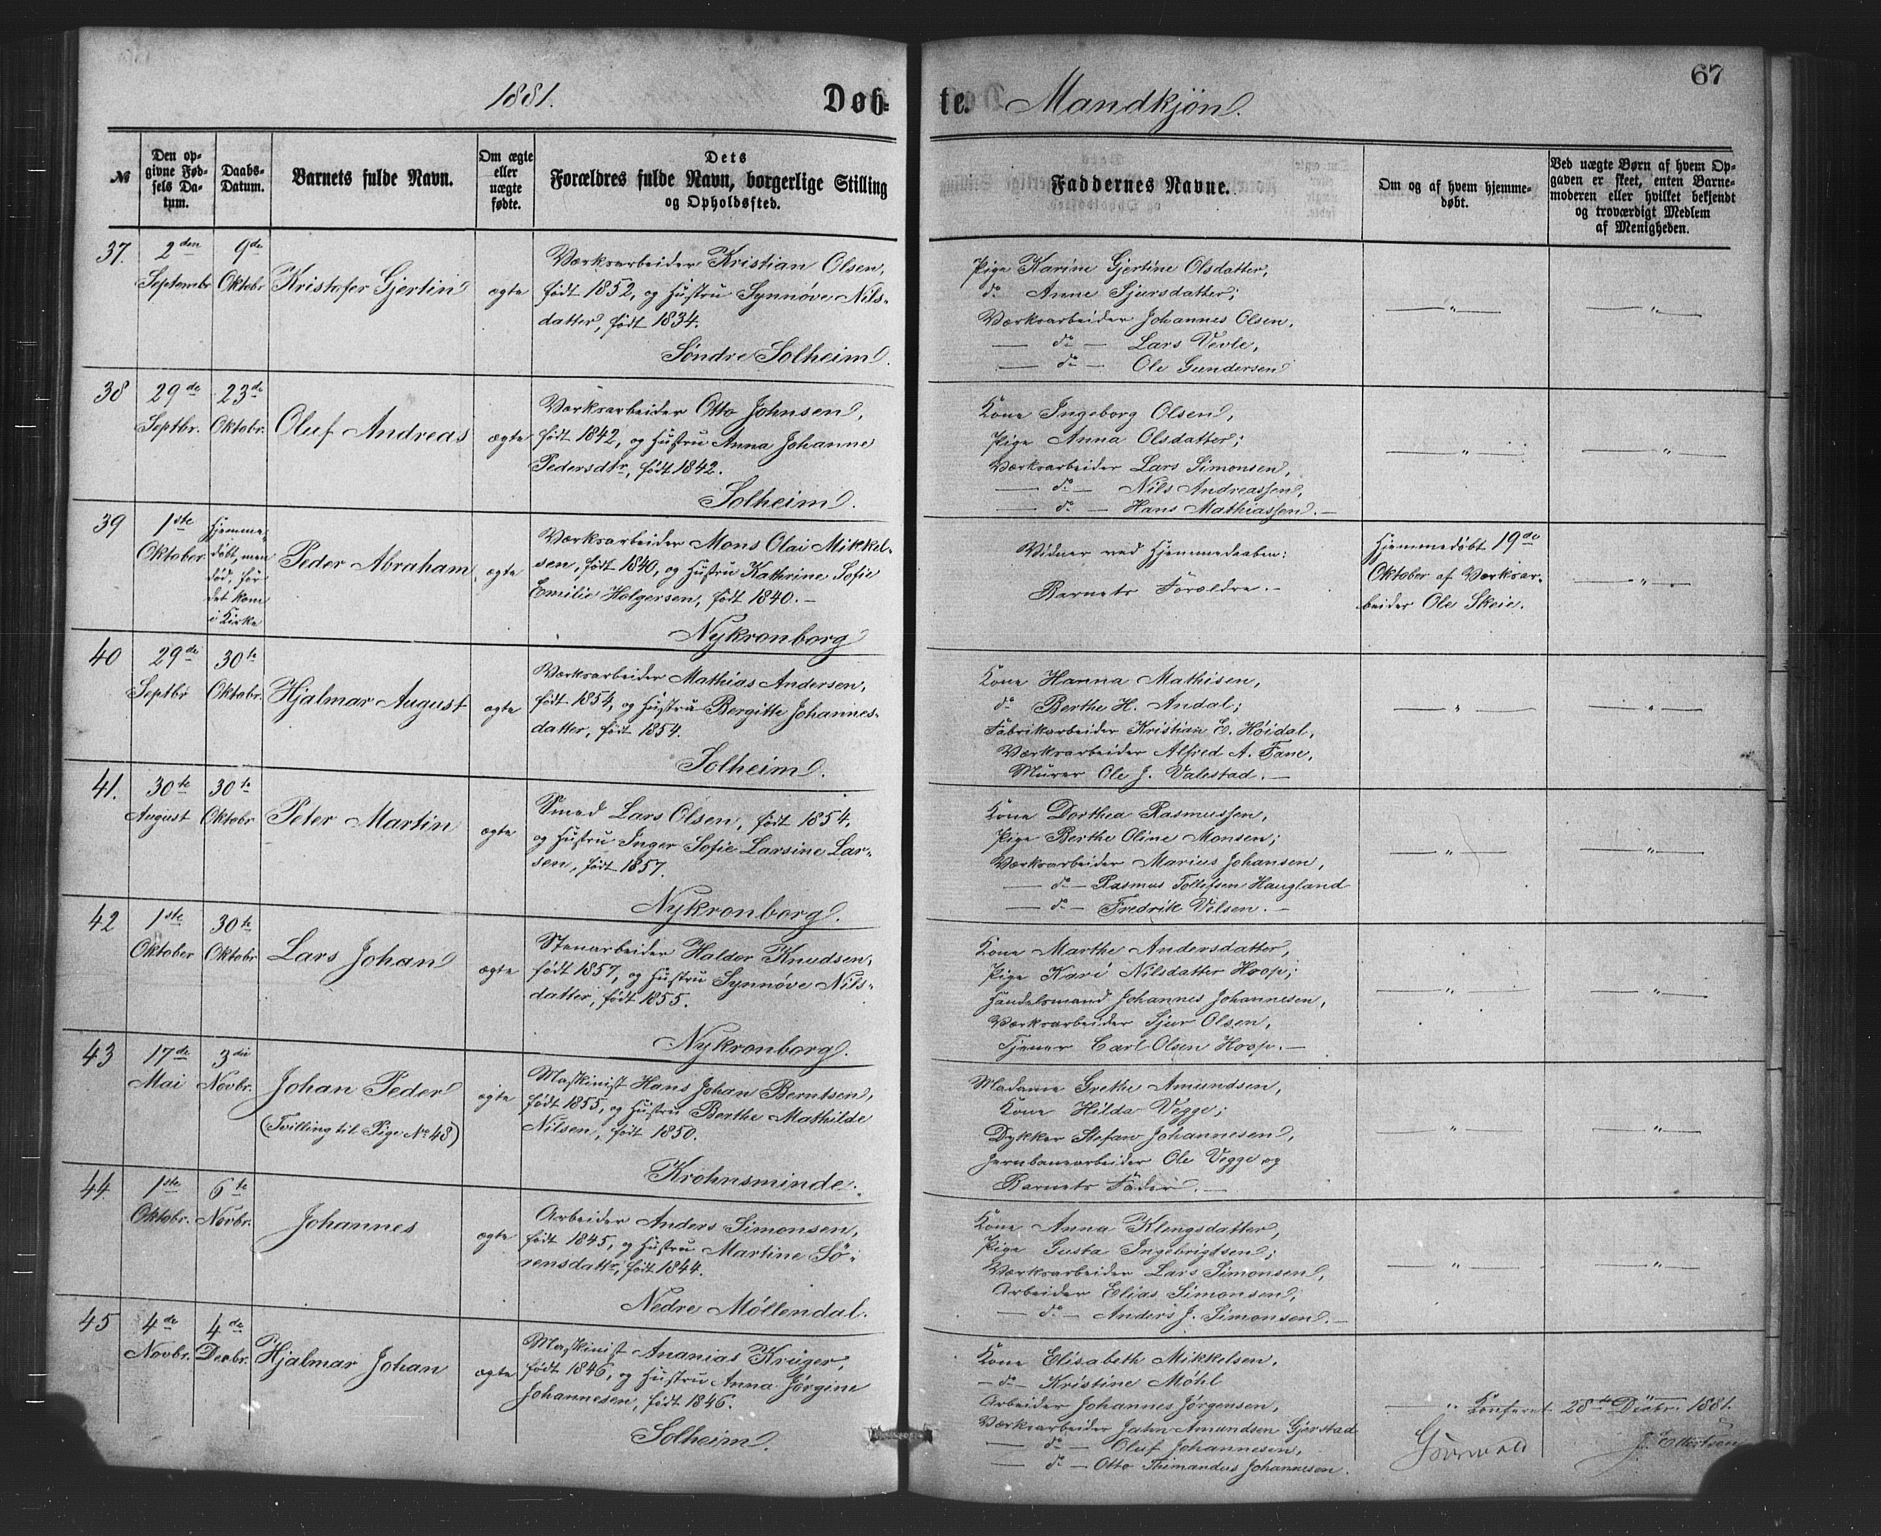 67
1881.
Døb-
te.
Mandkjøn.
№
Den op-
givne Fød-
sels Da-
tum.
Daabs-
Datum.
Barnets fulde Navn.
Om ægte
eller
uægte
fødte.
Dets
Forældres fulde Navn, borgerlige Stilling
og Opholdssted.
Faddernes Navne.
Om og af hvem hjemme-
døbt.
Ved uægte Børn af hvem Op-
gaven er skeet, enten Barne-
moderen eller hvilket bekjendt
og troværdigt Medlem
af Menigheden.
37.
2den
Septembr
9de
Oktobr
Kristofer Gjertin
ægte
Værksarbeider Kristian Olsen,
født 1852, og Hustru Synnøve Nils-
datter, født 1834.
Søndre Solheim.
Pige Karine Gjertine Olsdatter,
do Anne Sjursdatter;
Værksarbeider Johannes Olsen,
— do — Lars Vevle,
— do — Ole Gundersen
— " —
— " —
38
29de
Septbr.
23de
Oktobr.
Oluf Andreas
ægte
Værksarbeider Otto Johnsen,
født 1842, og Hustru Anna Johanne
Pedersdtr, født 1842.
Solheim.
Kone Ingeborg Olsen,
Pige Anna Olsdatter;
Værksarbeider Lars Simonsen,
— do — Nils Andreassen,
— do — Hans Mathiassen. —
— " —
— " —
39
1ste
Oktober
Hjemme-
døbt, men
død, før
det kom
i Kirke
Peder Abraham
ægte
Værksarbeider Mons Olai Mikkel-
sen, født 1840, og Hustru Kathrine Sofie
Emilie Holgersen, født 1840. —
Nykronborg
Vidner ved Hjemmedaaben:
Barnets Forældre. —
Hjemmedøbt 19de
Oktober af Værksar-
beider Ole Skeie.
— " —
40
29de
Septbr
30te
Oktobr.
Hjalmar August
ægte
Værksarbeider Mathias Andersen,
født 1854, og Hustru Bergitte Johannes-
datter, født 1854.
Solheim.
Kone Hanna Mathisen,
do Berthe H. Andal;
Fabrikarbeider Kristian E. Høidal,
Værksarbeider Alfred A. Fane,
Murer Ole J. Valestad. —
— " —
— " —
41.
30te
August
30te
Oktobr
Peter Martin
ægte
Smed Lars Olsen, født 1854,
og Hustru Inger Sofie Larsine Lar-
sen, født 1857.
Nykronborg.
Kone Dorthea Rasmussen,
Pige Berthe Oline Monsen;
Værksarbeider Marius Johansen,
— do — Rasmus Tollefsen Haugland
— do — Fredrik Vilsen. —
— " —
— " —
42
1ste
Oktober
30te
Oktobr
Lars Johan
ægte
Stenarbeider Haldor Knudsen,
født 1857, og Hustru Synnøve Nils-
datter, født 1855.
Nykronborg.
Kone Marthe Andersdatter,
Pige Kari Nilsdatter Hoop;
Handelsmand Johannes Johannesen,
Værksarbeider Sjur Olsen,
Tjener Carl Olsen Hoop. —
— " —
— " —
43
17de
Mai
3die
Novbr.
Johan Peder
(Tvilling til Pige No 48)
ægte
Maskinist Hans Johan Berntsen,
født 1855, og Hustru Berthe Mathilde
Nilsen, født 1850.
Krohnsminde.
Madame Grethe Amundsen,
Kone Hilda Vegge;
Dykker Stefan Johannesen,
Jernbanearbeider Ole Vegge og
Barnets Fader. —
— " —
— " —
44
1ste
Oktobr.
6te
Novbr.
Johannes
ægte
Arbeider Anders Simonsen,
født 1845, og Hustru Martine Sø-
rensdattr, født 1844.
Nedre Møllendal.
Kone Anna Klengsdatter,
Pige Gusta Ingebrigtsen;
Værksarbeider Lars Simonsen,
Arbeider Elias Simonsen,
— do — Anders J. Simonsen. —
— " —
— " —
45
4de
Novbr.
4de
Decbr.
Hjalmar Johan
ægte
Maskinist Ananias Krüger,
født 1846, og Hustru Anna Jørgine
Johannesen, født 1846.
Solheim.
Kone Elisabeth Mikkelsen,
— do — Kristine Møhl
Arbeider Johannes Jørgensen,
Værksarbeider Jahn Amundsen Gjerstad
— do — Oluf Johannesen,
— do — Otto Thimandus Johannesen.
— " —
Konferert 28de Decbr. 1881.